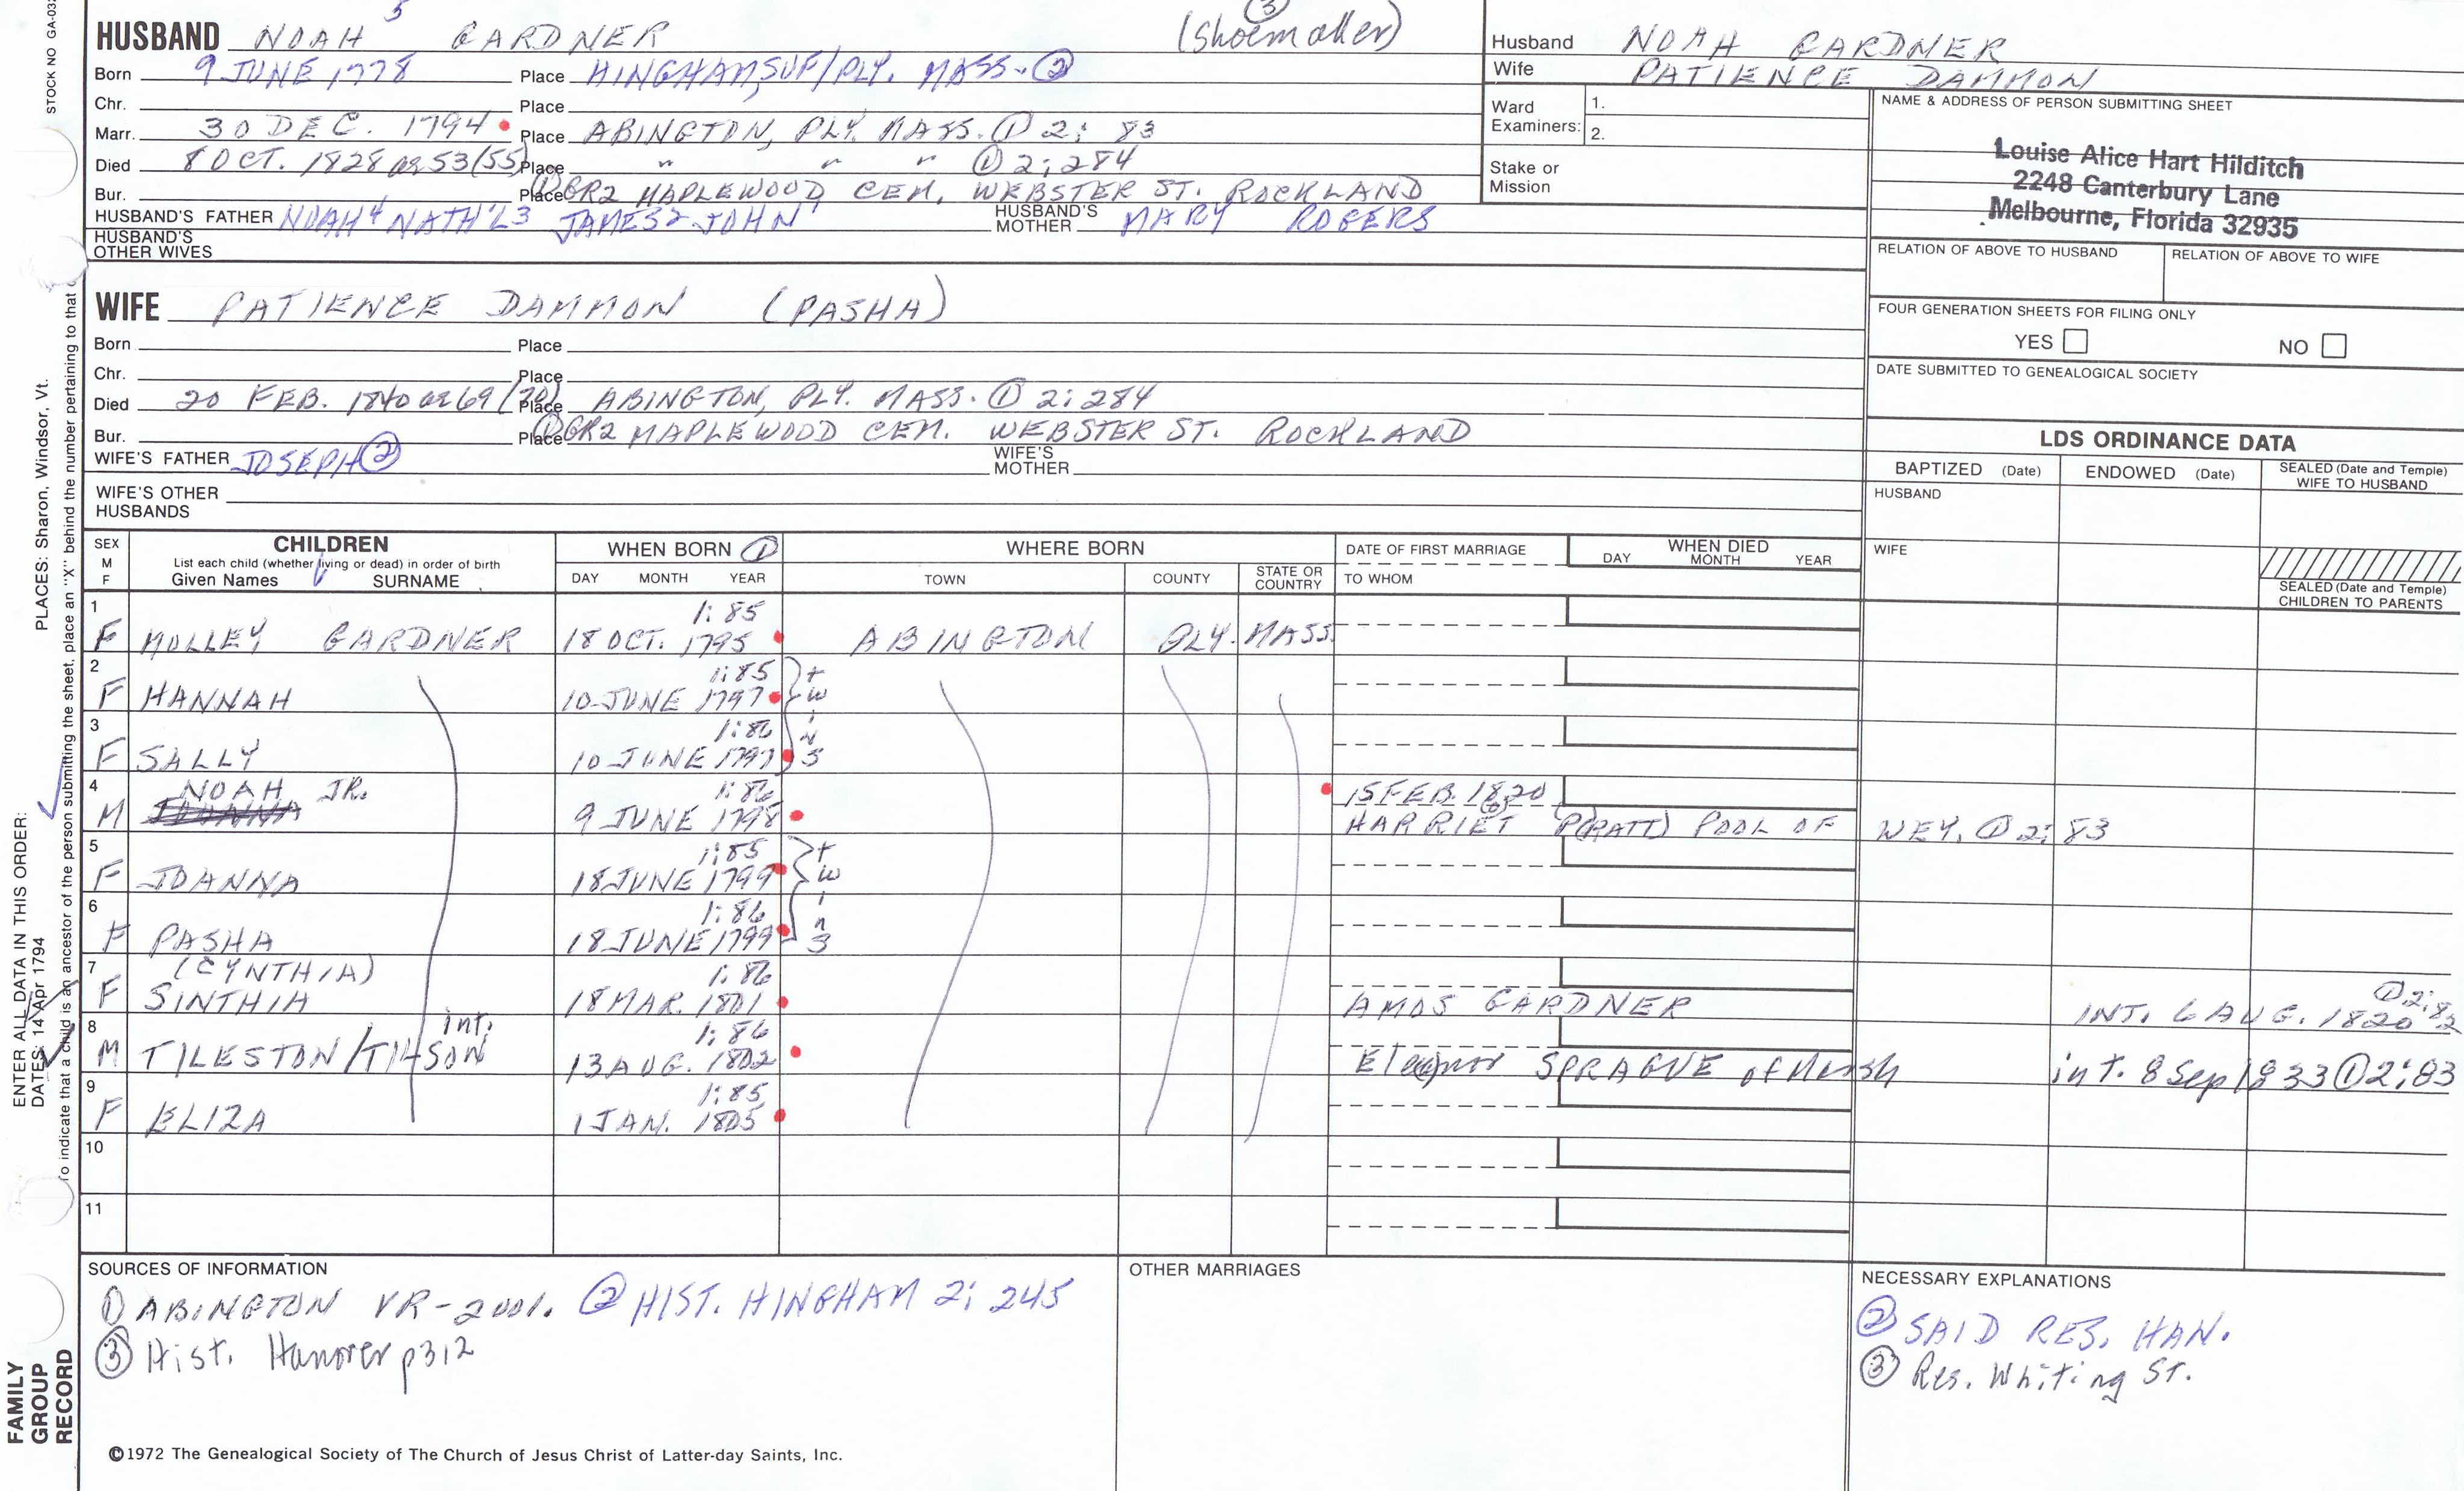 STOCK NO GA-032
HUSBAND NOAH 5 GARDNER (Shoemaker) ③
Born 9 JUNE 1778 Place HINGHAM, SUF/PLY. MASS. ②
Chr. Place
Marr. 30 DEC. 1794 Place ABINGTON, PLY. MASS. ① 2: 83
Died 8 OCT. 1828 ae 53 (55) Place " " " ① 2: 284
Bur. Place ① GR2 MAPLEWOOD CEM. WEBSTER ST. ROCKLAND
HUSBAND'S FATHER NOAH 4 NATH'L 3 JAMES 2 JOHN 1 HUSBAND'S MOTHER MARY ROGERS
HUSBAND'S OTHER WIVES
WIFE PATIENCE DAMMON (PASHA)
Born Place
Chr. Place
Died 20 FEB. 1840 ae 69 (70) Place ABINGTON, PLY. MASS. ① 2: 284
Bur. Place ① GR2 MAPLEWOOD CEM. WEBSTER ST. ROCKLAND
WIFE'S FATHER JOSEPH ② WIFE'S MOTHER
WIFE'S OTHER HUSBANDS
Husband NOAH GARDNER
Wife PATIENCE DAMMON
Ward Examiners: 1.
2.
Stake or Mission
NAME & ADDRESS OF PERSON SUBMITTING SHEET
Louise Alice Hart Hilditch
2248 Canterbury Lane
Melbourne, Florida 32935
RELATION OF ABOVE TO HUSBAND RELATION OF ABOVE TO WIFE
FOUR GENERATION SHEETS FOR FILING ONLY
YES NO
DATE SUBMITTED TO GENEALOGICAL SOCIETY
LDS ORDINANCE DATA
BAPTIZED (Date) ENDOWED (Date) SEALED (Date and Temple) WIFE TO HUSBAND
HUSBAND
WIFE
SEALED (Date and Temple) CHILDREN TO PARENTS
SEX M F CHILDREN WHEN BORN ① WHERE BORN DATE OF FIRST MARRIAGE WHEN DIED
List each child (whether living or dead) in order of birth
Given Names SURNAME DAY MONTH YEAR TOWN COUNTY STATE OR COUNTRY TO WHOM DAY MONTH YEAR
1 F MOLLEY GARDNER 1: 85 18 OCT. 1795 ABINGTON PLY. MASS.
2 F HANNAH 1: 85 10 JUNE 1797 twins
3 F SALLY 1: 86 10 JUNE 1797
4 M NOAH JR. 1: 86 9 JUNE 1798 15 FEB. 1820
HARRIET P(RATT) POOL OF WEY. ① 2: 83
5 F JOANNA 1: 85 18 JUNE 1799 twins
6 F PASHA 1: 86 18 JUNE 1799
7 F (CYNTHIA) SINTHIA 1: 86 18 MAR. 1801 AMOS GARDNER INT. 6 AUG. 1820 ① 2: 82
8 M TILESTON/TILSON int. 1: 86 13 AUG. 1802 Eleanor SPRAGUE of Marsh int. 8 Sep 1833 ① 2: 83
9 F ELIZA 1: 85 1 JAN. 1805
10
11
SOURCES OF INFORMATION
① ABINGTON VR-2vol. ② HIST. HINGHAM 2: 245
③ Hist. Hanover p312
OTHER MARRIAGES
NECESSARY EXPLANATIONS
② SAID RES. HAN.
③ Res. Whiting St.
©1972 The Genealogical Society of The Church of Jesus Christ of Latter-day Saints, Inc.
FAMILY GROUP RECORD
ENTER ALL DATA IN THIS ORDER:
DATES: 14 Apr 1794
PLACES: Sharon, Windsor, Vt.
To indicate that a child is an ancestor of the person submitting the sheet, place an "X" behind the number pertaining to that